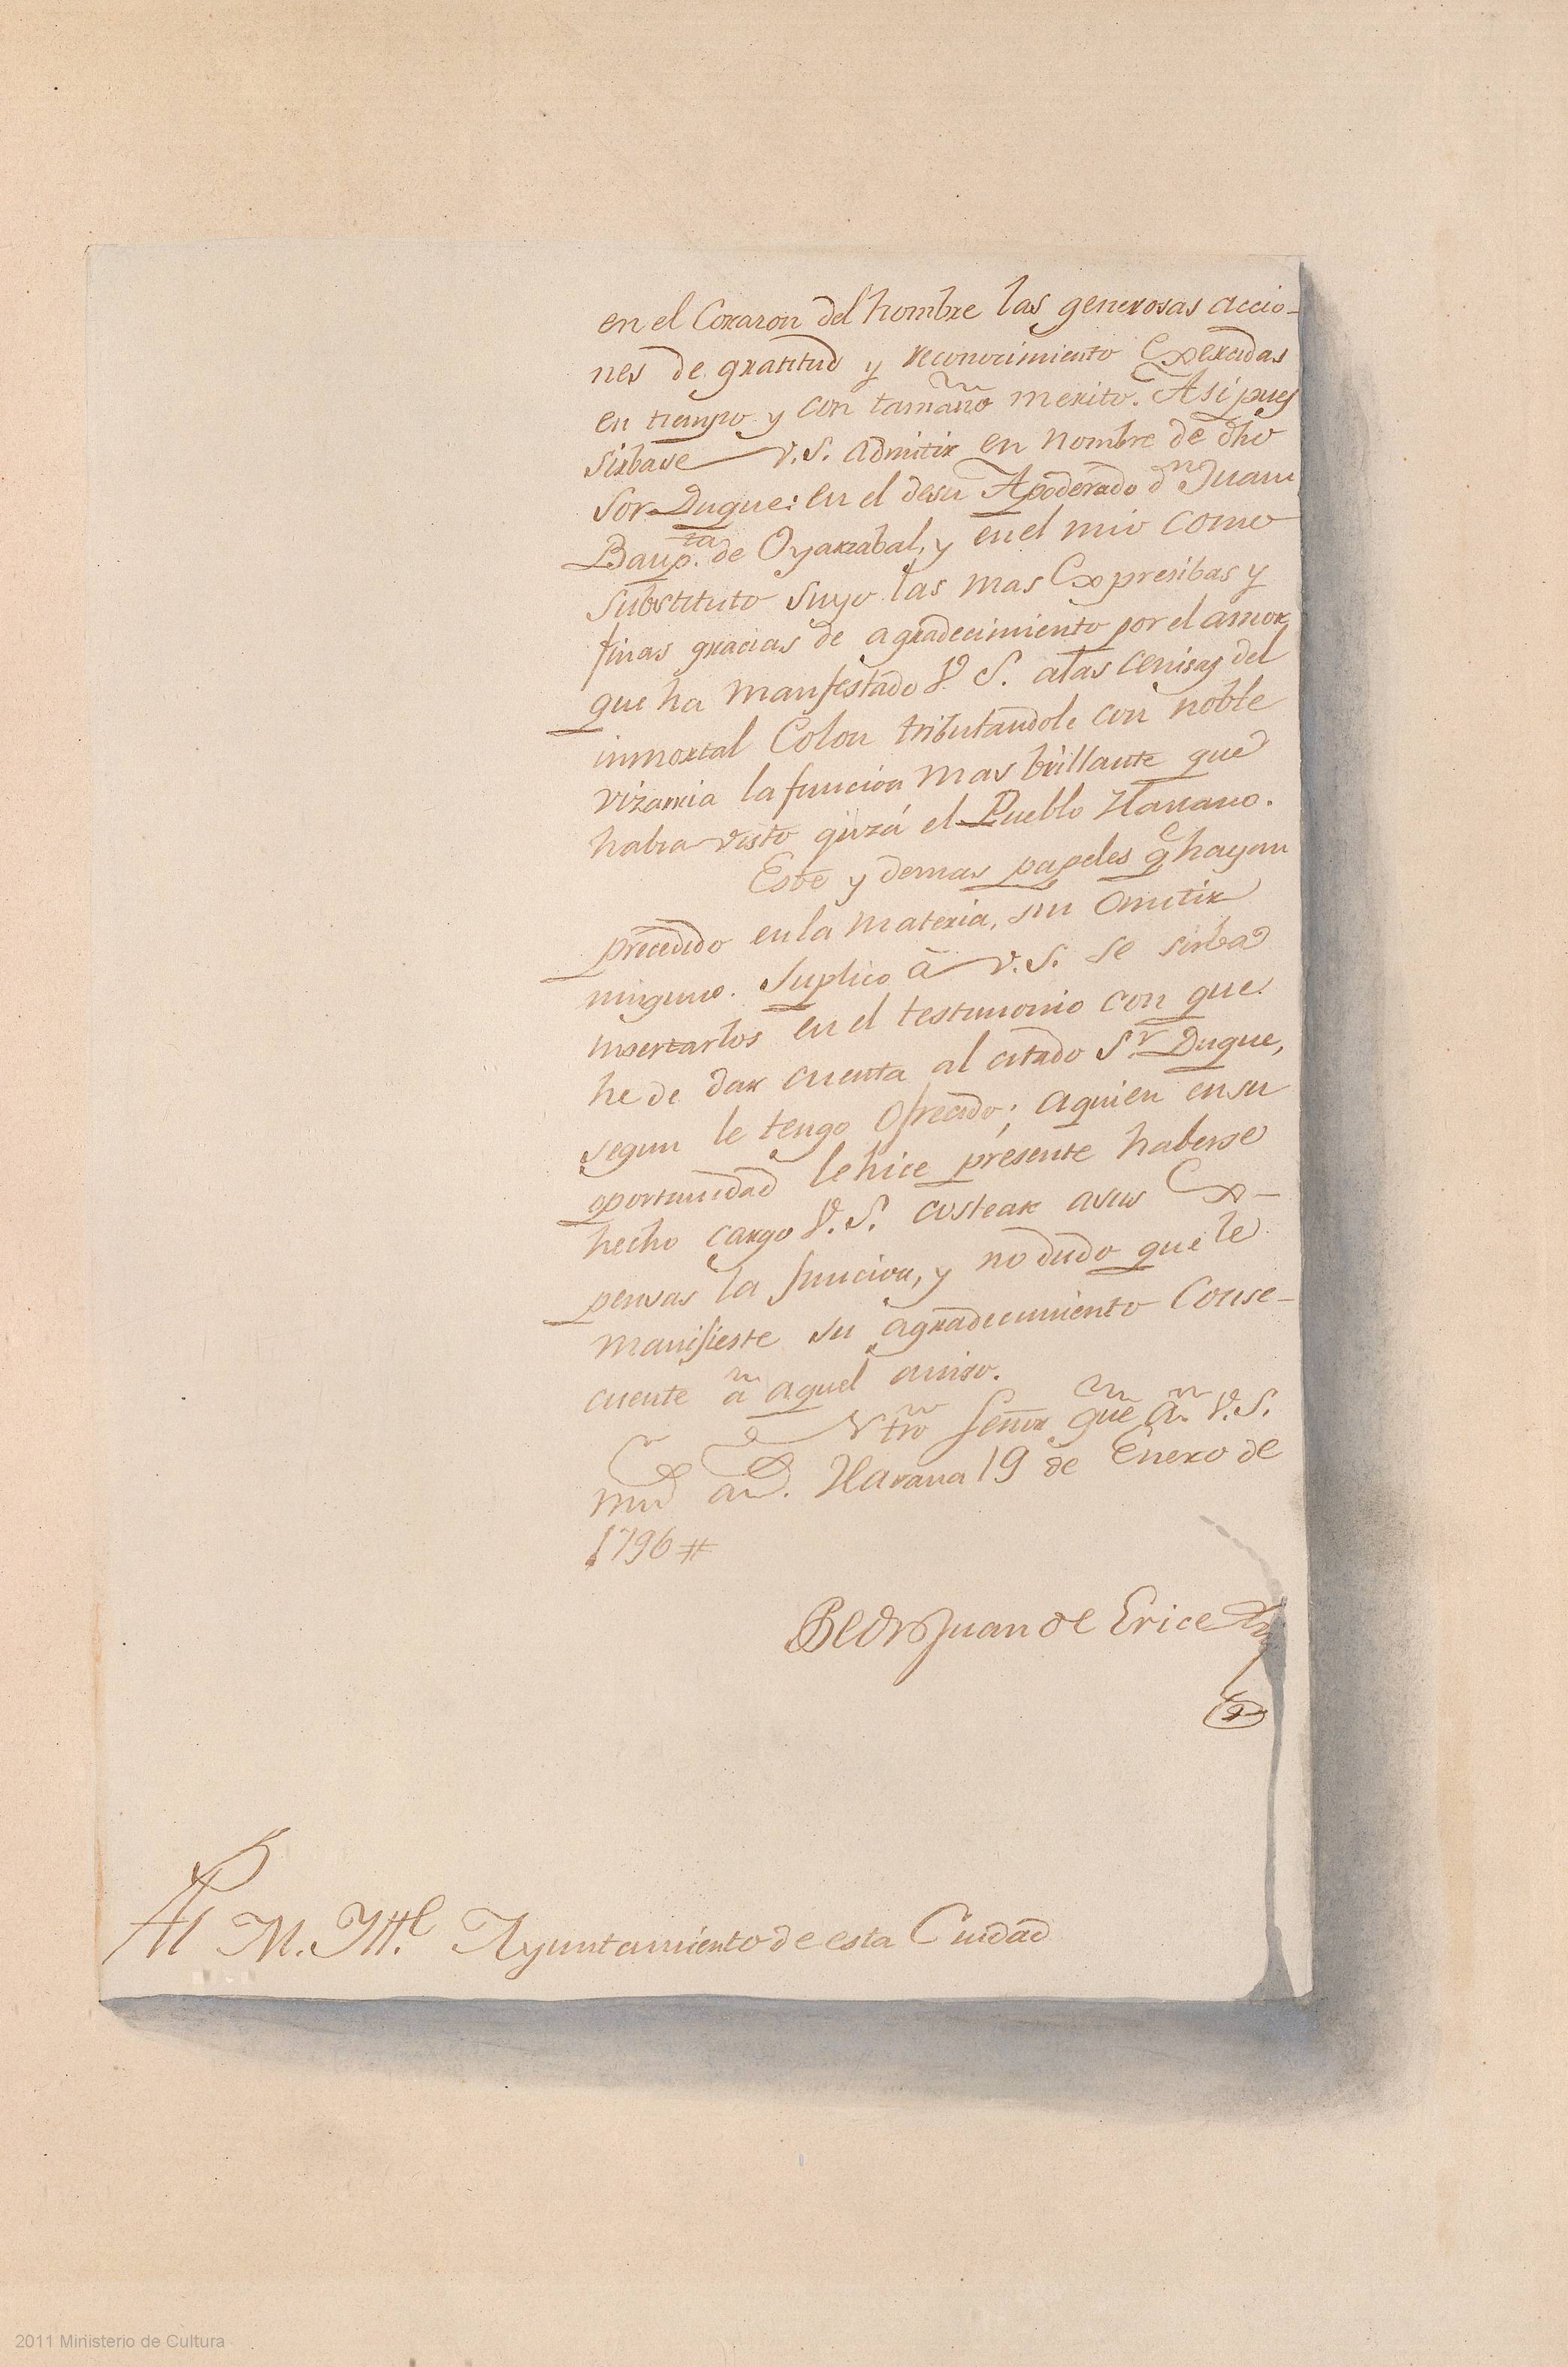 en el Corazon del hombre las generosas accio-
nes de gratitud y reconocimiento Exercidas
en tiempo y con tamaño merito. Asi pues
sirbase V.S. admitir en nombre de dho
Sor Duque: en el desu Apoderado dn Juan
Baupta. de Oyarzabal, y en el mio como
Substituto suyo las mas Expresibas y
finas gracias de agradecimiento por el amor
que ha manifestado V.S. alas Cenisas del
inmortal Colon tributandole con noble
vizarria la funcion mas brillante que
habra visto quizá el Pueblo Havano.
Este y demas papeles qe hayan
precedido enla materia, sin Omitir
ninguno. Suplico à V.S. se sirba
insertarlos en el testimonio con que
he de dar cuenta al citado Sr. Duque,
segun le tengo Ofrecido; aquien ensu
oportunidad lehice presente haberse
hecho cargo V.S. costear asus Ex-
pensas la funcion, y no dudo que le
manifieste su agradecimiento Conse-
cuente à aquel aviso.
Ntro Señor gue à V.S.
ms as. Havana 19 de Enero de
1796 #
Pedro Juan de Erice
Al M. Itte Ayuntamiento de esta Ciudad
2011 Ministerio de Cultura